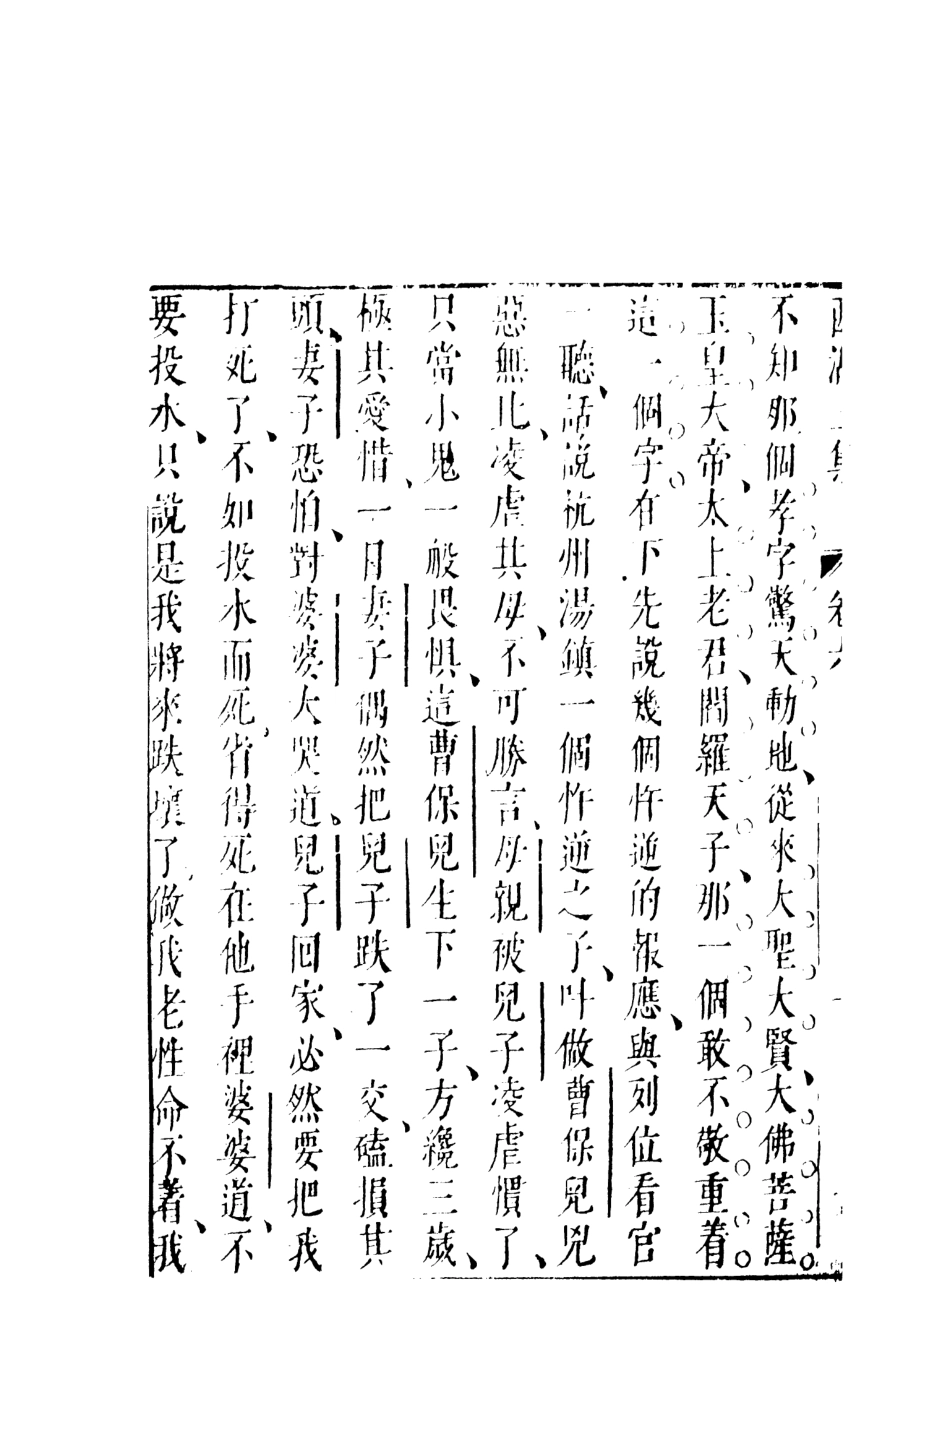 不知那個孝字驚天動地、從來大聖大賢、大佛菩薩。
玉皇大帝、太上老君、閻羅天子、那一個敢不敬重着。
這一個字。在下先說幾個忤逆的報應、與列位看官
一聽、話說杭州湯鎮一個忤逆之子、叫做曹保兒兇
惡無比、凌虐其母、不可勝言、母親被兒子凌虐慣了、
只當小鬼一般畏惧、這曹保兒生下一子、方纔三歲、
極其愛惜、一日妻子偶然把兒子跌了一交、磕損其
頭、妻子恐怕、對婆婆大哭道、兒子回家、必然要把我
打死了、不如投水而死、省得死在他手裡婆婆道、不
要投水、只說是我將來跌壞了、做我老性命不着、我